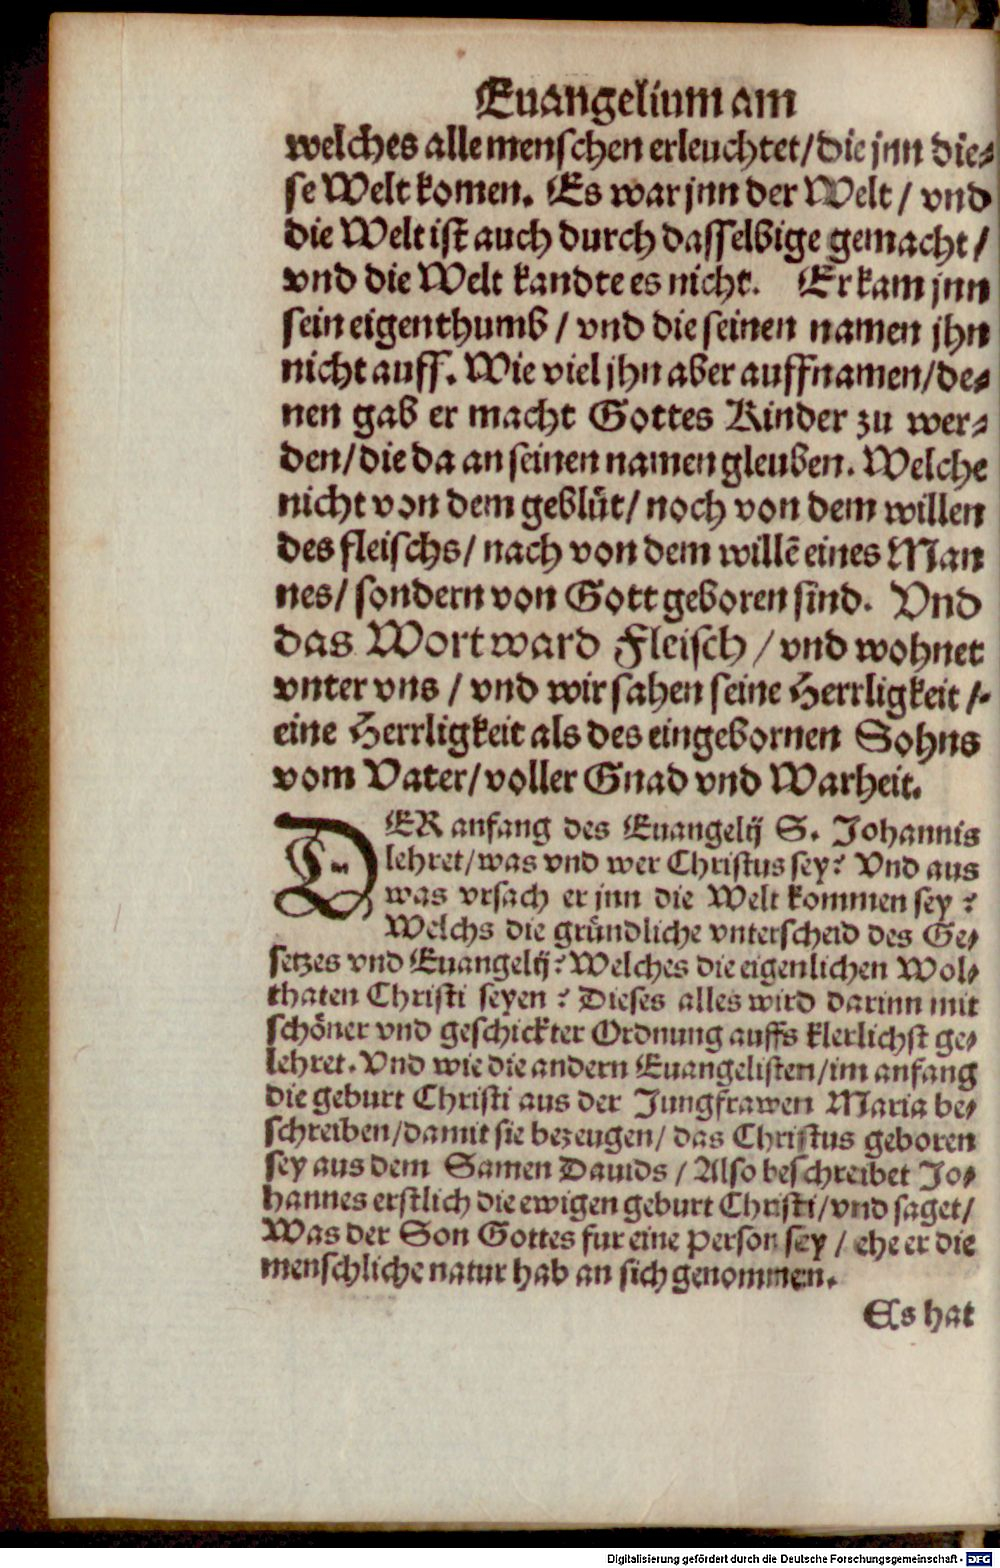 Euangelium am
welches alle menschen erleuchtet/die jnn die-
se Welt komen. Es war jnn der Welt / vnd
die Welt ist auch durch dasselbige gemacht /
vnd die Welt kandte es nicht. Er kam jnn
sein eigenthumb / vnd die seinen namen jhn
nicht auff. Wie viel jhn aber auffnamen/de-
nen gab er macht Gottes Kinder zu wer-
den/die da an seinen namen gleuben. Welche
nicht von dem geblüt/ noch von dem willen
des fleischs/ nach von dem willẽ eines Man
nes/ sondern von Gott geboren sind. Vnd
das Wort ward Fleisch / vnd wohnet
vnter vns / vnd wir sahen seine Herrligkeit /
eine Herrligkeit als des eingebornen Sohns
vom Vater/voller Gnad vnd Warheit.
DER anfang des Euangelij S. Johannis
lehret/was vnd wer Christus sey? Vnd aus
was vrsach er jnn die Welt kommen sey ?
Welchs die gründliche vnterscheid des Ge-
setzes vnd Euangelij? Welches die eigenlichen Wol-
thaten Christi seyen ? Dieses alles wird darinn mit
schöner vnd geschickter Ordnung auffs klerlichst ge-
lehret. Vnd wie die andern Euangelisten/im anfang
die geburt Christi aus der Jungfrawen Maria be-
schreiben/damit sie bezeugen/ das Christus geboren
sey aus dem Samen Dauids / Also beschreibet Jo-
hannes erstlich die ewigen geburt Christi/vnd saget/
Was der Son Gottes fur eine Person sey / ehe er die
menschliche natur hab an sich genommen.
Es hat
Digitalisierung gefördert durch die Deutsche Forschungsgemeinschaft - DFG